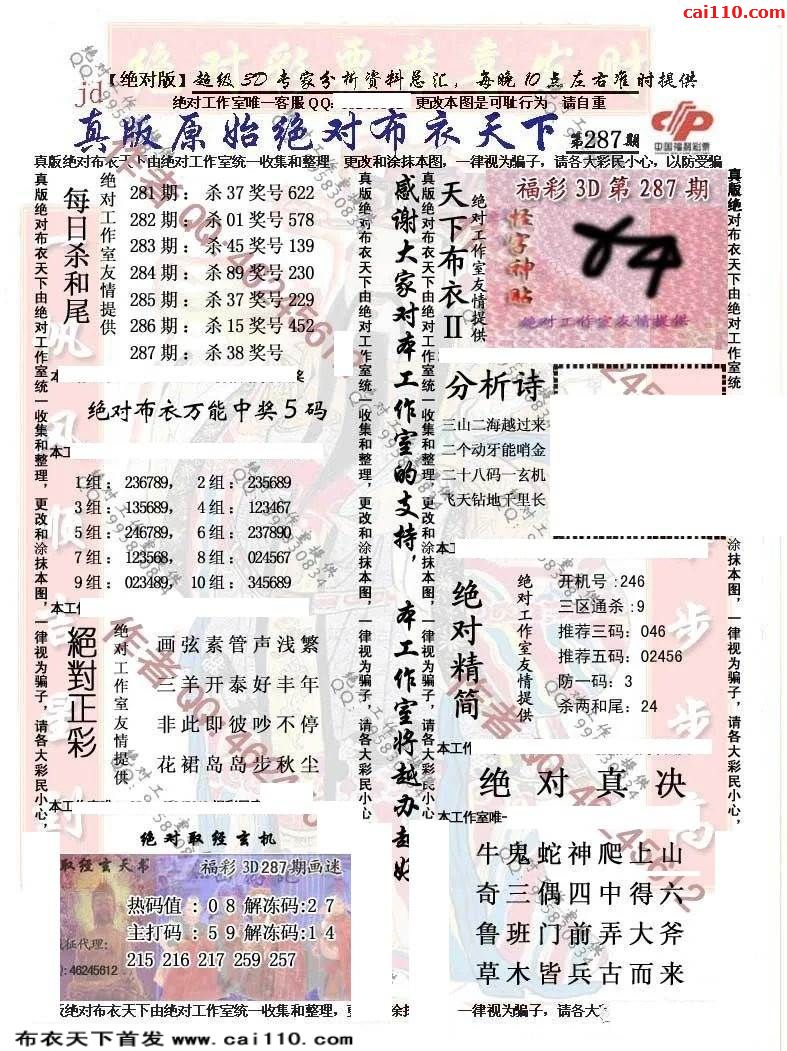 cai110.com
【绝对版】超级3D专家分析资料总汇，每晚10点左右准时提供
jd
绝对工作室唯一客服QQ: 更改本图是可耻行为 请自重
真版原始绝对布衣天下 第287期
中国福利彩票
真版绝对布衣天下由绝对工作室统一收集和整理，更改和涂抹本图，一律视为骗子，请各大彩民小心，以防受骗
真版绝对布衣天下由绝对工作室统一收集和整理，更改和涂抹本图，一律视为骗子，请各大彩民小心，
每日杀和尾
绝对工作室友情提供
281期：杀37奖号622
282期：杀01奖号578
283期：杀45奖号139
284期：杀89奖号230
285期：杀37奖号229
286期：杀15奖号452
287期：杀38奖号
绝对布衣万能中奖5码
1组：236789， 2组：235689
3组：135689， 4组：123467
5组：246789， 6组：237890
7组：123568， 8组：024567
9组：023489， 10组：345689
本工作
絕對正彩
绝对工作室友情提供
画弦素管声浅繁
三羊开泰好丰年
非此即彼吵不停
花裙岛岛步秋尘
绝对取经玄机
取经玄天书 福彩3D287期画迷
热码值：08解冻码:27
主打码：59解冻码:14
征代理:
:46245612
215 216 217 259 257
真版绝对布衣天下由绝对工作室统一收集和整理，更改和涂抹本图，一律视为骗子，请各大彩民小心，
感谢大家对本工作室的支持，本工作室将越办越好
真版绝对布衣天下由绝对工作室统一收集和整理，更改和涂抹本图，一律视为骗子，请各大彩民小心，
天下布衣II
绝对工作室友情提供
福彩3D第287期
怪字神贴
绝对工作室友情提供
分析诗
三山二海越过来
二个动牙能哨金
二十八码一玄机
飞天钻地千里长
绝对精简
绝对工作室友情提供
开机号:246
三区通杀:9
推荐三码：046
推荐五码：02456
防一码：3
杀两和尾：24
本工作
绝对真决
本工作室唯一
牛鬼蛇神爬上山
奇三偶四中得六
鲁班门前弄大斧
草木皆兵古而来
真版绝对布衣天下由绝对工作室统
涂抹本图，一律视为骗子，请各大彩民小心，
版绝对布衣天下由绝对工作室统一收集和整理，更 涂抹 一律视为骗子，请各大
布衣天下首发 www.cai110.com